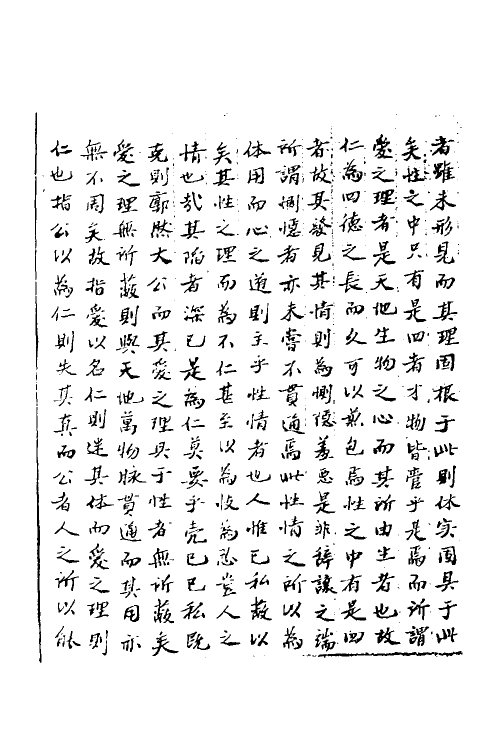 者雖未形見而其理固根于此則体实固具于此
矣性之中只有是四者才物皆管乎是焉而所謂
愛之理者是天地生物之心而其所由生者也故
仁為四德之長而久可以兼包焉性之中有是四
者故其發見其情則為惻隱羞惡是非辭讓之端
所謂惻隱者亦未嘗不貫通焉此性情之所以為
体用而心之道則主乎性情者也人惟已私蔽以
矣其性之理而為不仁甚至以為忮為忍豈人之
情也哉其陷者深已是為仁莫要乎克已已私既
克則廓然大公而其愛之理具于性者無所蔽矣
愛之理無所蔽則與天地萬物脉貫通而其用亦
無不周矣故指愛以名仁則迷其体而愛之理則
仁也指公以為仁則失其真而公者人之所以能